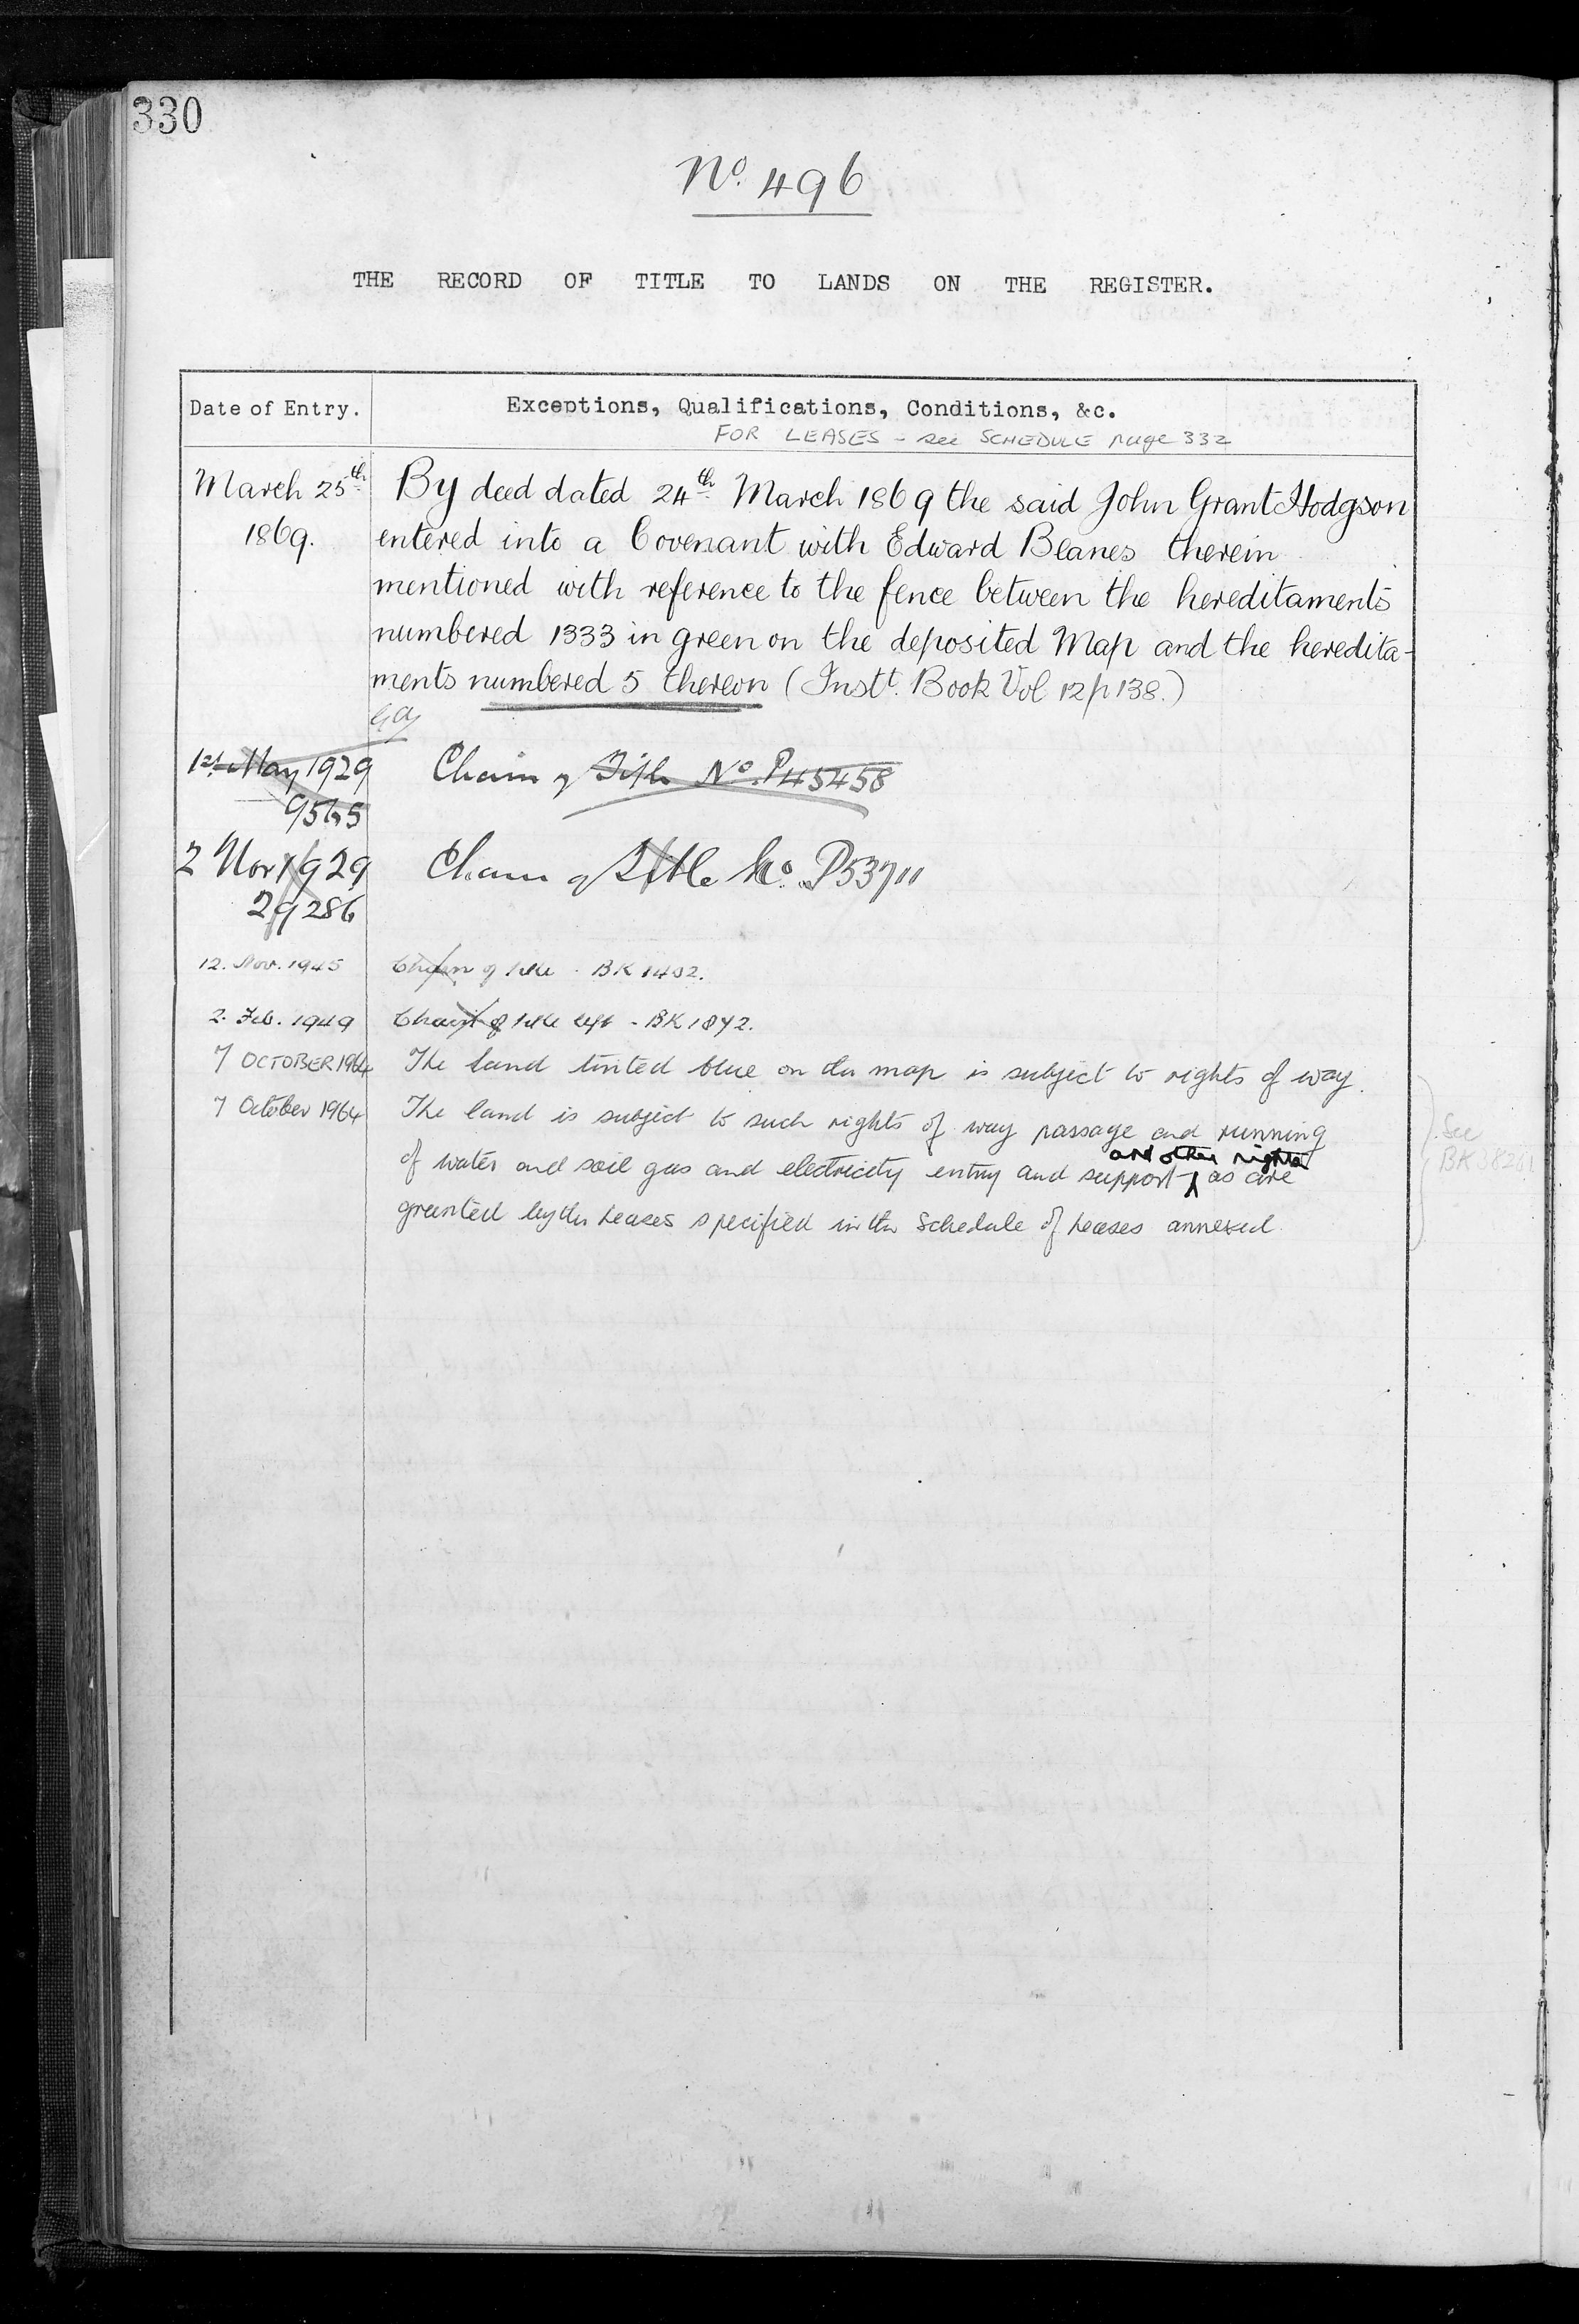 330
No. 496
THE RECORD OF TITLE TO LANDS ON THE REGISTER.
Date of Entry. Exceptions, Qualifications, Conditions, &c.
FOR LEASES - see SCHEDULE page 332
March 25th By deed dated 24th March 1869 the said John Grant Hodgson
1869. entered into a Covenant with Edward Beanes therein
mentioned with reference to the fence between the hereditaments
numbered 1333 in green on the deposited Map and the heredita-
ments numbered 5 thereon (Instt. Book Vol 12 p 138.)
1st May 1929 Chain of Title No. P45458
2 Nov 1929 Chain of Title No. P53711
29286
12. Nov. 1945 Chain of title - BK 1402.
2. Feb. 1949 Chain of title left - BK 1872.
7 OCTOBER 1964 The land tinted blue on the map is subject to rights of way.
7 October 1964 The land is subject to such rights of way passage and running
of water and soil gas and electricity entry and support and other rights as are
granted by the Leases specified in the Schedule of Leases annexed
See